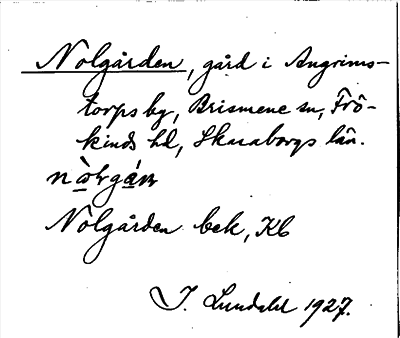 Nolgården, gård i Angrims-
torps by, Brismene sn, Frö-
kinds hd, Skaraborgs län.
Nolgården bek, Kb
I. Lundahl 1927.